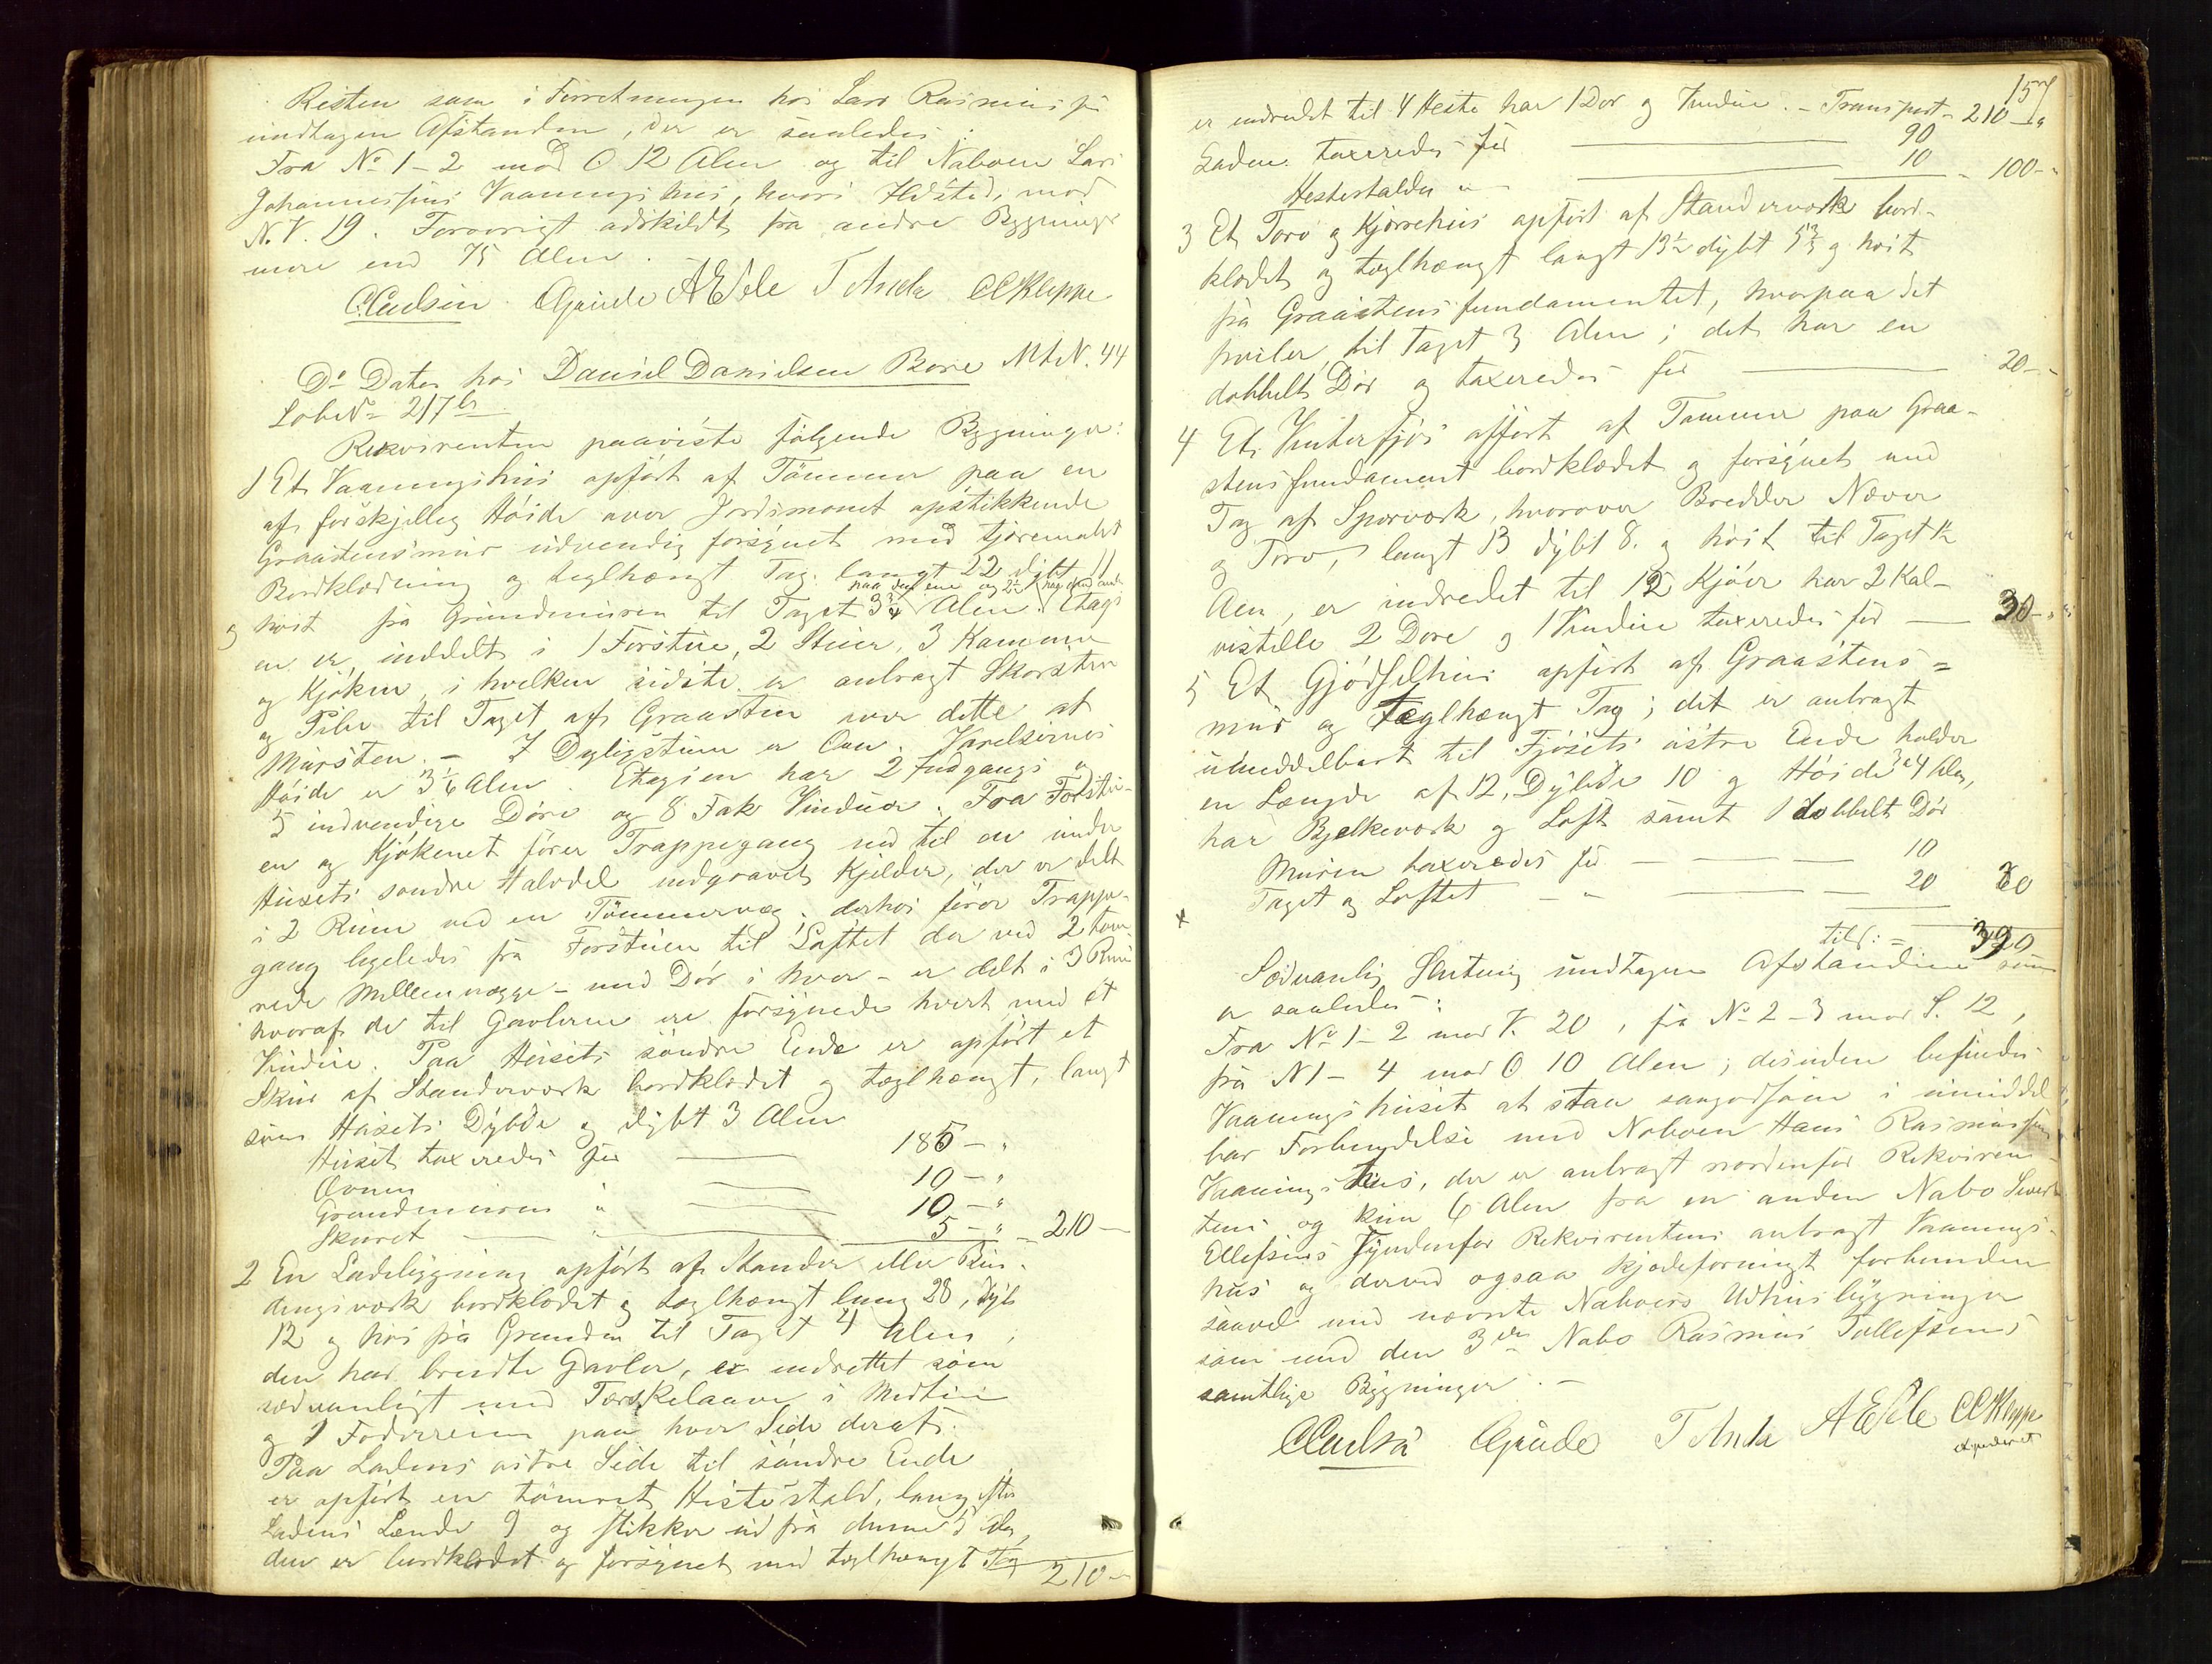 Resten som i Forretningen hos Lars Rasmussen
undtagen Afstanden, der er saaledes:
Fra No 1-2 mod O 12 Alen og til Naboen Lars
Johannessens Vaaningshus, hvori Ildsted, mod
N.V. 19. Forøvrigt adskildt fra andre Bygninger
mere end 75 Alen.
AEele T Anda CCKleppe
Do Dato hos Daniel Danielsen Bore MtN. 44
LøbeNo 217b
Rekvirenten paaviste følgende Bygninger:
1 Et Vaaningshus opført af Tømmer paa en
af forskjellig Høide over Jordsmonet opstikkende
Graastensmur udvendig forsynet med tjæremalet
Bordklædning og teglhængt Tag. langt 22 dybt 11
paa den ene og 2½ paa den and.
og høit fra Grundmuren til Taget 3¾ Alen. Etagi
en er inddelt i 1 Forstue, 2 Stuer, 3 Kammere
og Kjøken, i hvilken sidste er anbragt Skorsten
og Pibe til Taget af Graasten over dette af
Mursten. – I Dagligstuen er Ovn. Værelsernes
Høide er 3⅙ Alen. Etagien har 2 Indgangs og
5 indvendige Døre og 8 Fak Vinduer. Fra Forstu-
en og Kjøkenet fører Trappegang ned til en under
Husets søndre Halvdel nedgravet Kjelder, der er delt
i 2 Rum ved en Tømmervæg. derhos fører Trappe-
gang ligeledes fra Forstuen til Loftet der ved 2 tøm
rede Mellemvægge – med Dør i hver – er delt i 3 Rum
hvoraf de til Gavlerne ere forsynede hvert med et
Vindue. Paa Husets søndre Ende er opført et
Skur af Standerværk bordklædt og teglhængt, langt
som Husets Dybde og dybt 3 Alen
Huset taxeredes for 185 – "
Ovnen 10 – "
Grundmuren " 10 – "
Skuret " 5 – " – 210 –
2 En Ladebygning opført af Stander eller Bin-
dingsværk bordklædt og teglhængt lang 28, dyb
12 og høi fra Grunden til Taget 4 Alen;
den har brudte Gavler, er indrettet som
sædvanligt med Tærskelaave i Midten
og 1 Foderrum paa hver Side deraf.
Paa Ladens østre Side til søndre Ende
er opført en tømret Hestestald, lang efter
Ladens Længde 9 og stikker ud fra denne 5 Alen,
den er bordklædt og forsynet med teglhængt Tag
210 –
157
er indredet til 4 Heste har 1 Dør og Vindue. – Transport – 210 – "
Laden taxeredes for 90
Hestestalden " 10 – 100 – "
3 Et Torv og Kjørrehus opført af Standerværk bord-
klædt og teglhængt langt 13½ dybt 5⅔ og høit
fra Graastensfundamentet, hvorpaa det
hviler, til Taget 3 Alen; det har en
dobbelt Dør og taxeredes for 20 – "
4 Et Vinterfjøs opført af Tømmer paa Graa-
stensfundament bordklædt og forsynet med
Tag af Sperværk, hvorover Bredder Næver
og Torv, langt 13 dybt 8. og høit til Taget
Alen, er indredet til 12 Kjør har 2 Kal-
vestelle 2 Døre og 1 Vindue taxeredes for 30 – "
5 Et Gjødselhus opført af Graastens=
mur og teglhængt Tag; det er anbragt
umiddelbart til Fjøsets østre Ende holder
en Længde af 12, Dybde 10 og Høide 3 a 4 Alen,
har Bjelkeværk og Loft samt 1 dobbelt Dør
Muren taxeredes for 10
Taget og Loftet – " 20
tils: = 390
Sædvanlig Slutning undtagen Afstandene som
er saaledes:
Fra No 1-2 mod V. 20, fra No 2-3 mod S. 12,
fra N 1-4 mod O 10 Alen; desuden befindes
Vaaningshuset at staa saagodtsom i umiddel
bar Forbindelse med Naboen Hans Rasmussens
Vaaningshus, der er anbragt nordenfor Rekviren-
tens og kun 6 Alen fra en anden Nabo Sivert
Ellefsens syndenfor Rekvirentens anbragt Vaanings-
hus og derved ogsaa kjædeformigt forbunden
saavel med nævnte Naboers Udhusbygninger
som med den 3die Nabo Rasmus Tollefsens
samtlige Bygninger. –
T Anda AEele CCKleppe